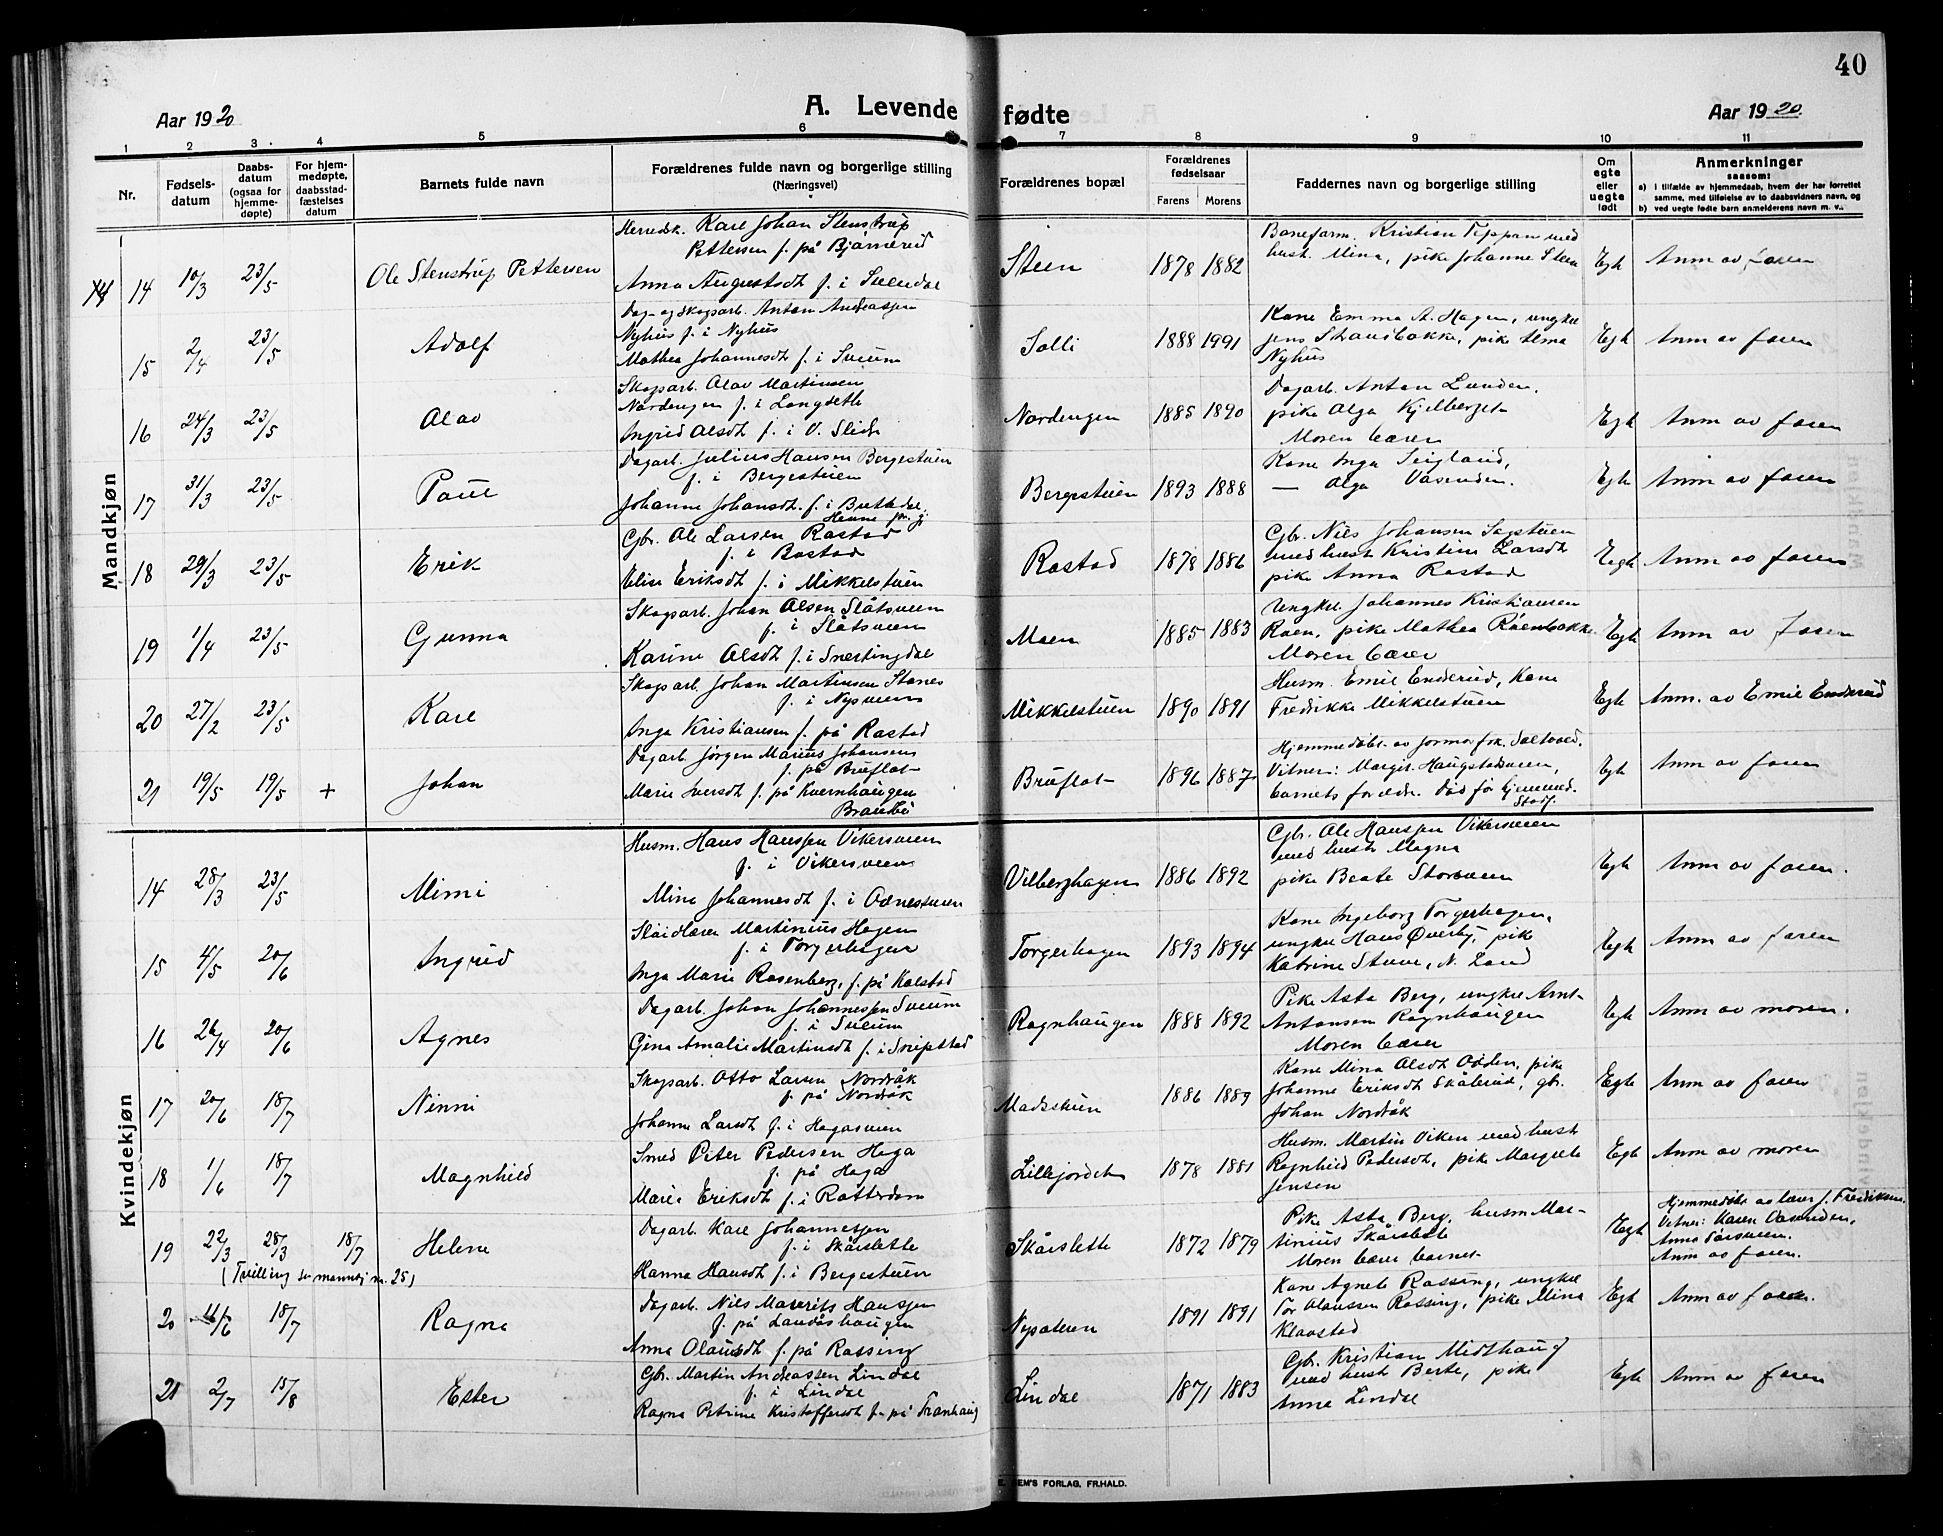 40
Aar 1920
A. Levende fødte
Aar 1920.
1 2 3 4 5 6 7 8 9 10 11
Nr.
Fødsels-
datum
Daabs-
datum
(ogsaa for
hjemme-
døpte)
For hjem-
medøpte,
daabsstad-
fæstelses
datum
Barnets fulde navn
Forældrenes fulde navn og borgerlige stilling
(Næringsvei)
Forældrenes bopæl
Forældrenes
fødselsaar
Farens Morens
Faddernes navn og borgerlige stilling
Om
egte
eller
uegte
født
Anmerkninger
saasom:
a) i tilfælde av hjemmedaab, hvem der har forrettet
samme, med tilføielse av to daabsvidners navn, og
b) ved uegte fødte barn anmelderens navn m. v..
Mandkjøn
14 14 10/3 23/5 Ole Stenstrup Pettersen
Herredsk. Kare Johan Stenstrup
Pettersen f. på Bjørnerud
Anna Augustsdt f. i Svendal
Steen 1878 1882
Baneform. Kristian Tippan med
hust. Mina, pike Johanne Steen
Egte Anm av faren
15 2/4 23/5 Adolf
Dag- og skogsarb. Anton Andreassen
Nyhus f. i Nyhus
Mathea Johannesdt f. i Sveum
Solli 1888 1991
Kone Emma A. Hagen, ungkl
Jens Strandbakke, pike Alma
Nyhus
Egte Anm av faren
16 24/3 23/5 Olav
Skogsarb. Olav Martinsen
Nordengen f. i Longsete
Ingrid Olsdt f. i V. Slidre
Nordengen 1885 1890
Dagarb. Anton Lunden.
pike Olga Kjelberget
Moren bærer
Egte Anm av faren
17 31/3 23/5 Paul
Dagarb. Julius Hansen Bergestuen
f. i Bergestuen
Johanne Johansdt. f. i Buttedal
Bergestuen 1893 1888
Kone Inga Seigland,
— Olga Våsenden.
Egte Anm av faren
18 29/3 23/5 Erik
Gbr. Ole Larsen Rostad
f. i Rostad
Elise Eriksdt f. i Mikkelstuen
Rostad 1878 1886
Gbr. Nils Johansen Sagstuen
med hust Kristine Larsdt
pike Anna Rostad
Egte Anm av faren
19 1/4 23/5 Gunna
Skogsarb. Johan Olsen Slåtsveen
f. i Slåtsveen
Karine Olsdt f. i Snertingdal
Moen 1885 1883
Ungkl. Johannes Kristiansen
Roen, pike Mathea Roenbakke
Moren bærer
Egte Anm av faren
20 27/2 23/5 Kare
Skogsarb. Johan Martinsen Stenes
f. i Nysveen
Inga Kristiansen f. på Rostad
Mikkelstuen 1890 1891
Husm. Emil Enderud, Kone
Fredrikke Mikkelstuen
Egte Anm. av Emil Enderud
21 19/5 19/5 + Johan
Dagarb. Jørgen Marius Johansens
f. på Bruflat
Marie Iversdt f. på Kvernhaugen
Brandbu
Bruflat 1896 1887
Hjemmedøbt av jormor frk. Saltved.
Vitner: Margit Haugstadsveen,
barnets foreldr. Død før hjemmed.
stadf.
Egte Anm av faren
Kvindekjøn
14 28/3 23/5 Mimi
Husm. Hans Hanssen Vikersveen
f. i Vikersveen
Mina Johannesdt f. i Odnesveen
Vilberghagen 1886 1892
Gbr. Ole Hanssen Vikersveen
med hust Magna
pike Beate Storsveen
Egte Anm av faren.
15 4/5 20/6 Ingrid
Martinius Hagen
f. i Torgerhagen
Inga Marie Rosenberg, f. på Kolstad
Torgerhagen 1893 1894
Kone Ingeborg Torgerhagen,
ungkl Hans Øverby, pike
Katrine Stuve, N. Land
Egte Anm av faren
16 26/4 20/6 Agnes
Dagarb. Johan Johannessen Sveum
f. i Sveum
Gina Amalie Martinsdt f. i Snipstad
Rognhaugen 1888 1892
Pike Asta Berg, ungkl Arnt
Antonsen Rognhaugen
Moren bærer
Egte Anm av moren.
17 20/6 18/7 Ninni
Skogsarb. Otto Larsen Nordråk
f. på Nordråk
Johanne Larsdt f. i Hagasveen
Madsstuen 1886 1889
Kone Mina Olsdt Odden, pike
Johanne Eriksdt Skålerud, gbr.
Johan Nordråk
Egte Anm av faren
18 1/6 18/7 Magnhild
Smed Peter Pedersen Haga
f. på Haga
Marie Eriksdt f. i Rotterdam
Lillejordet 1878 1881
Husm. Martin Viken med hust
Ragnhild Pedersdt, pike Margrete
Jensen
Egte Anm av moren
19 22/3 28/3 18/7 Helene
(Tvilling se mannkj nr. 25)
Dagarb. Kare Johannessen
f. i Skårslette
Hanna Hansdt f. i Bergestuen
Skårslette 1872 1879
Pike Asta Berg, husm Mar-
tinius Skårslette
Moren bærer barnet
Egte
Hjemmedøbt av lærer J. Fredriksen.
Vitner: Karen Våsenden,
Anna
Anm av faren.
20 16/6 18/7 Ragna
Dagarb. Nils Mavrits Hanssen
f. på Landåshaugen
Anna Olausdt f. på Rossing
Nyseteren 1891 1891
Kone Agnete Rossing, ungkl
Tor Olaussen Rossing, pike Mina
Klaastad
Egte Anm av faren.
21 2/7 15/8 Ester
Gbr. Martin Andreassen Lindal
f. i Lindal
Ragna Petrine Kristoffersdt f. på Tranhaug
Lindal 1871 1883
Gbr. Kristian Midthaug
med hust Berte, pike
Anna Lindal
Egte Anm av faren
E. SEM'S FORLAG, FR.HALD.